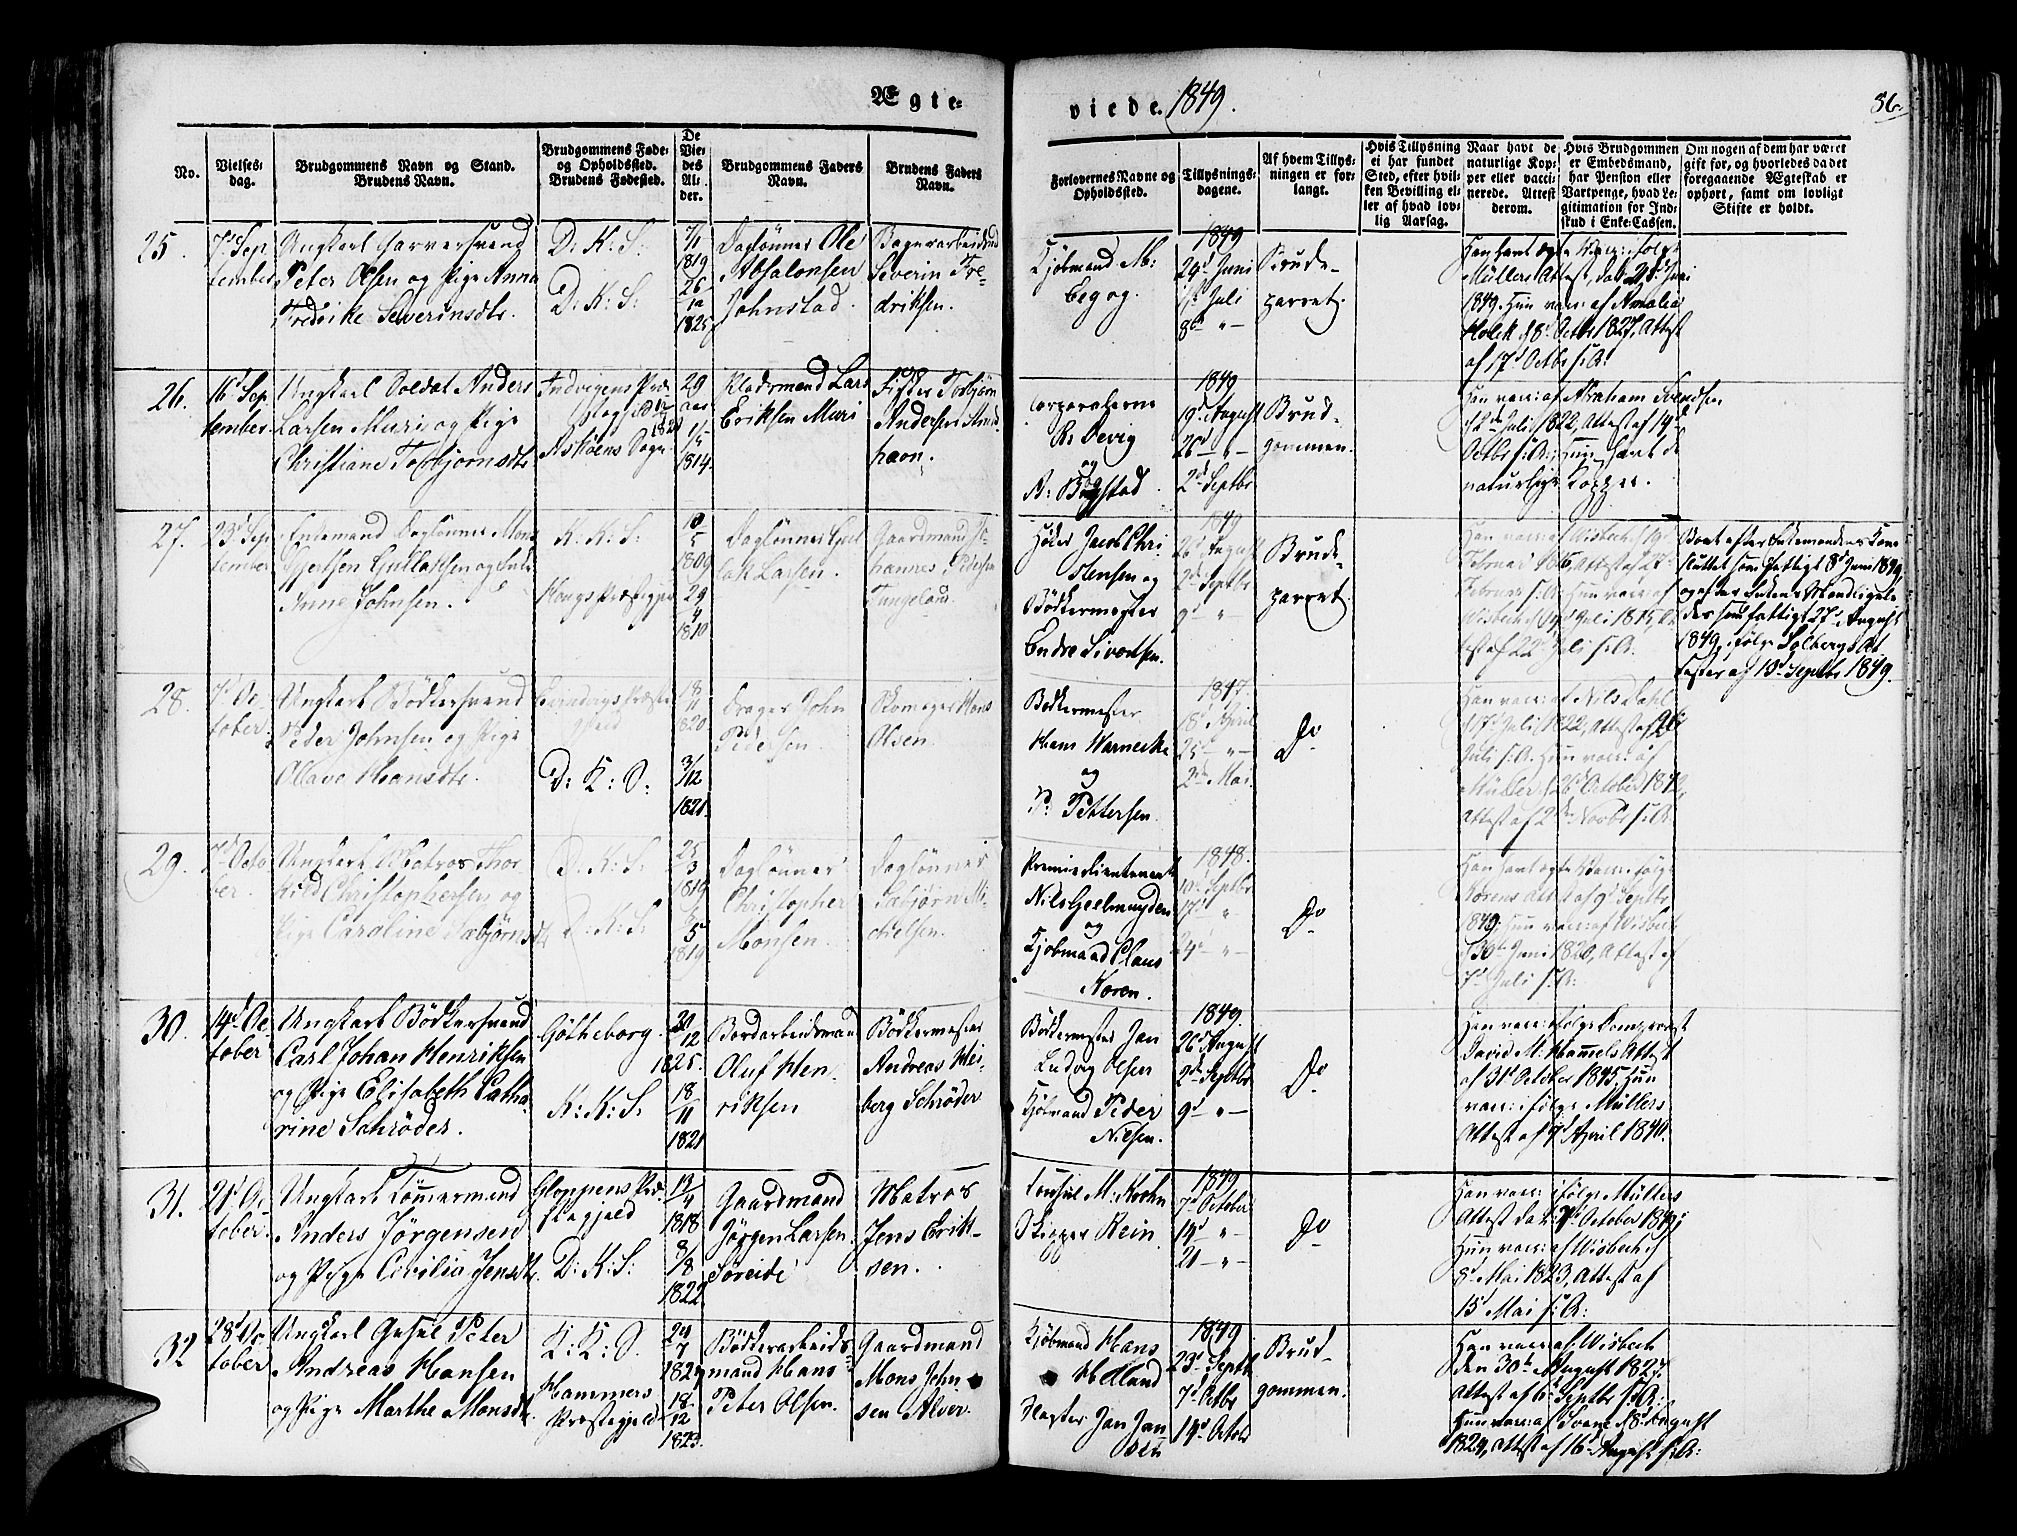 Ægte-
viede 1849.
86.
No.
Vielses-
dag.
Brudgommens Navn og Stand.
Brudens Navn.
Brudgommens Føde-
og Opholdssted.
Brudens Fødested.
De
Vie-
des
Al-
der.
Brudgommens Faders
Navn.
Brudens Faders
Navn.
Forlovernes Navne og
Opholdssted.
Tillysnings-
dagene.
Af hvem Tillys-
ningen er for-
langt.
Hvis Tillysning
ei har fundet
Sted, efter hvil-
ken Bevilling el-
ler af hvad lov-
lig Aarsag.
Naar havt de
naturlige Kop-
per eller vacci-
nerede. Attest
derom.
Hvis Brudgommen
er Embedsmand,
har Pension eller
Vartpenge, hvad Le-
gitimation for Ind-
skud i Enke-Cassen.
Om nogen af dem har været
gift før, og hvorledes da det
foregaaende Ægteskab er
ophørt, samt om lovligt
Skifte er holdt.
25.
7d Sep
tember
Ungkarl Garversvend
Peter Olsen og Pige Anna
Fredrike Severinsdtr.
D: K: S:
D: K: S:
7/1
1819
26/10
1825
Daglønner Ole
Absalonsen
Johnstad.
Severin Fre-
driksen.
Kjøbmand M:
Begog.
1849
24d Juni
1d Juli
8d " —
Brude-
parret.
Müllers Attest, dat. 21d Juni
1849. Hun vacc: af Amalia
Holck d 8d Octbr 1827, Attest
af 17d Octbr s: A:
26.
16d Sep
tember.
Ungkarl Soldat Anders
Larsen Muri og Pige
Christiane Torbjørnsdtr.
Indvigens Præ
stegjeld
Askøens Sogn
29
aar
1/5
1814.
Pladsmand Lars
Eriksen Muri
Fisker Torbjørn
Andersen Strud
havn.
Corporalerne
R: Devig
og
A: Bøgstad
1849
19d August
26d — " —
2d Septbr
Brud-
gommen.
Han vacc: af Abraham Svendsen
d 2d Juli 1822, Attest af 19d
Octbr s: A:, hun havt de
naturlige Kopper.
27.
23d Sep
tember
Enkemand Daglønner Mons
Gjertsen Gullaksen og Enke
Anne Johnsen.
K: K: S:
Hougs Præstegjeld
10/5
1809
29/4
1810
Daglønner Gul
lak Larsen.
Gaardmand Jo-
hannes Pedersen
Tungeland.
Høker Jacob Chri
stensen og
Bødkermester
Endre Sivertsen.
1849
26d August
2d Septbr
9d — " —
Brude-
parret.
Februar s: A: Hun vacc: af
Wisbech d 14d Juli 1815, At-
test af 22d Juli s: A:
Boet efter Enkemandens Kone
sluttet som fattigt 8d Juni 1849,
og efter Enkens Mand ligele-
des som fattigt 27d August
1849, ifølge Solbergs At
tester af 13d Septbr 1849.
28.
7d Oc
tober
Ungkarl Bødkersvend
Peder Johnsen og Pige
Olava Hansdtr.
Evindvigs Præste
gjeld
D: K: S:
18/11
1820
3/12
1821.
Drager John
Pedersen
Skomager Hans
Olsen.
Bødkermester
Hans Warnecke
og
P: Pettersen
1847.
18d April
25d — " —
2d Mai.
Do
Han vacc: af Nils Dahl
d 17d Juli 1822, Attest af 26d
Juli s: A: Hun vacc: af
Müller d 26d October 1842,
Attest af 2d Novbr s: A:
29.
7d Octo
ber.
Ungkarl Matros Thor
kild Christophersen og
Pige Caroline Sæbjørnsdtr
D: K: S:
D: K: S:
25/3
1819
5
1819
Daglønner
Christopher
Monsen.
Daglønner
Sæbjørn Mi-
chelsen.
Premierlieutenant
Nils Geelmuyden
og
Kjøbmand Claus
Koren.
1848.
10d Septbr
17d "
24d — " —
Do
Korens Attest af 9d Septbr
1849. Hun vacc: af Wisbech
d 30d Juni 1820, Attest af
7d Juli s: A:
30.
14d Oc
tober
Ungkarl Bødkersvend
Carl Johan Henriksen
og Pige Elisabeth Catha
rine Schrøder.
Götheborg.
K: K: S:
20/12
1825.
18/11
1821
Bordarbeidsmand
Oluf Hen-
riksen
Bødkermester
Andreas Wei-
berg Schrøder
Bødkermester Jan
Ludvig Olsen
Kjøbmand Peder
Nilsen.
1849.
26d August
2d Septbr
9d — " —
Do
David M: Hummels Attest
af 31d October 1845. Hun
vacc: ifølge Müllers
Attest af 9d April 1840.
31.
21d Oc
tober.
Ungkarl Tømmermand
Anders Jörgensen
og Pige Cecilia Jensdtr.
Gloppens Præ-
stegjeld
D: K: S:
13/4
1818
8/8
1822
Gaardmand
Jörgen Larsen
Søreide
Matros
Jens Erik-
sen.
Consul M: Krohn
Skipper Rein.
1849
7d October
14d — " —
21 — " —
Do
Han vacc: ifølge Müllers
Attest dat: 2d October 1849;
Hun vacc: af Wisbech d
8d Mai 1823, Attest af
15d Mai s: A:
32
28d Oc
tober
Ungkarl Gesel Peter
Andreas Hansen
og Pige Marthe Monsdtr.
K: K: S.
Hammers
Præstegjeld
24/7
1827
18/12
1823.
Bödkerarbeids-
mand Hans
Peter Olsen.
Gaardmand
Mons John
sen Alver.
Kjøbmand Hans
Hetland
Slagter Jan Jan
sen
1849
23d Septbr
7d Octbr
14d Octbr
Brud-
gommen.
Han vacc: af Wisbech
den 30d August 1827,
Attest af 6d Septbr s: A:
Hun vacc: af Svane d 8d August
1824, Attest af 16d August s: A: